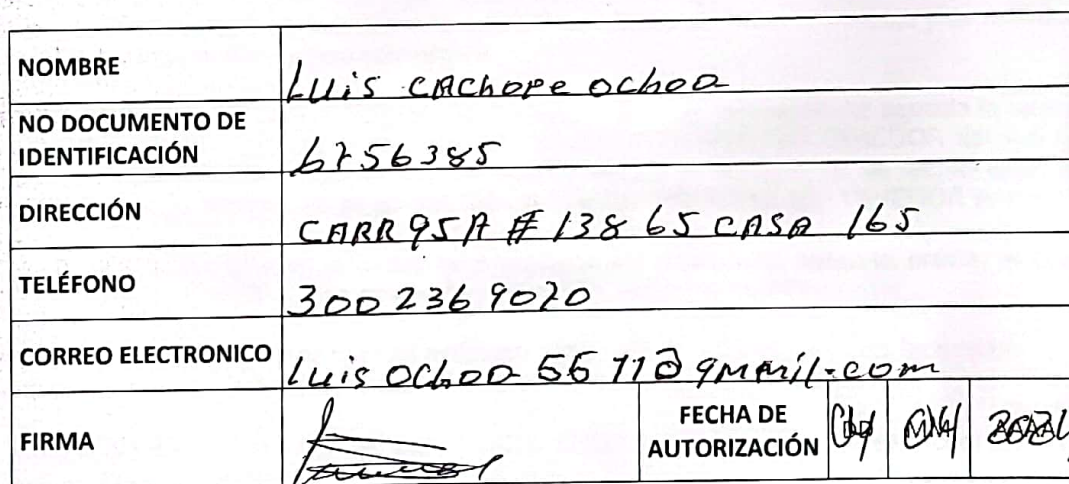 NOMBRE Luis CACHOPE OCHOA
NO DOCUMENTO DE
IDENTIFICACIÓN 6756385
DIRECCIÓN CARR 95A # 138 65 CASA 165
TELÉFONO 300 236 9070
CORREO ELECTRONICO Luis OChoa 5571@gmail.com
FIRMA
FECHA DE
AUTORIZACIÓN